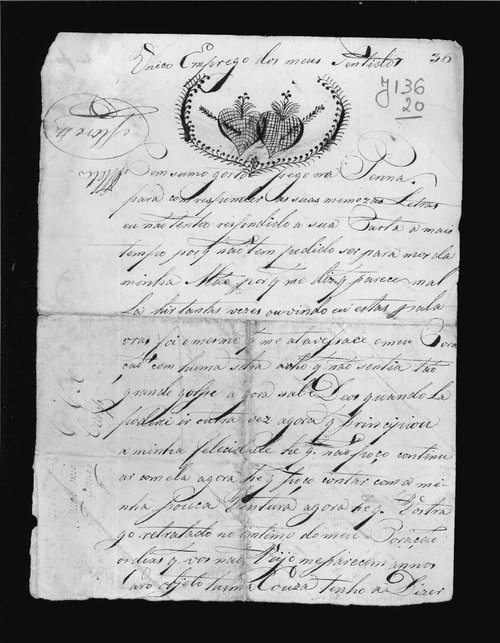 Unico Emprego dos meus Sentidos
30
J136
20
Com sumo gosto pego na Penna
para comresponder as suas mimozas Letras
eu não tenho resfondido a sua Carta a mais
tempo porq não tem podido ser para mor da
minha Mãe porq me diz q parece mal
La hir tantas vezes ouvindo eu estas pala
vras foi o mesmo q me atavepace o meu Cora
ção com huma seta acho q não sentia tão
grande golpe agora sabe Deos quando La
poderei ir outra vez agora q principiou
a minha felicidade he q não poço continu
ar com ela agora he q poço contar com a mi
nha pouca Ventura agora he q Vos tra
go retratado no intimo do meu Coração
os dias q vos não Vejo me parecem annos
Caro objeto huma Couza tenho a Dizer